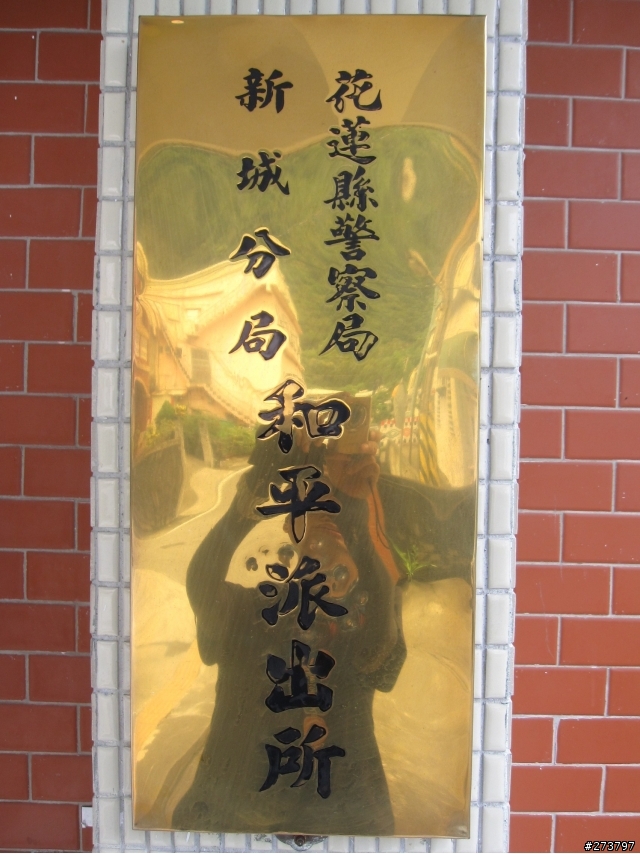 花蓮縣警察局
新城分局
和平派出所
#273797